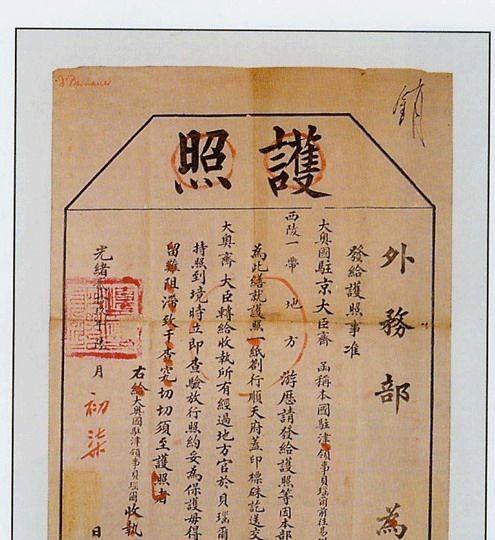 銷
護照
外務部 為
發給護照事准
大奧國駐京大臣齊 函稱本國駐津領事貝瑙爾前往易
西陵一帶地方 游歷請發給護照等因本部
為此繕就護照一紙劄行順天府蓋印標硃訖送交
大奧齊大臣轉給收執所有經過地方官於貝瑙爾
持照到境時立即查驗放行照約妥為保護毋得
留難阻滯致干查究切切須至護照者
右給大奧國駐津領事貝瑙爾收執
光緒 月初柒日